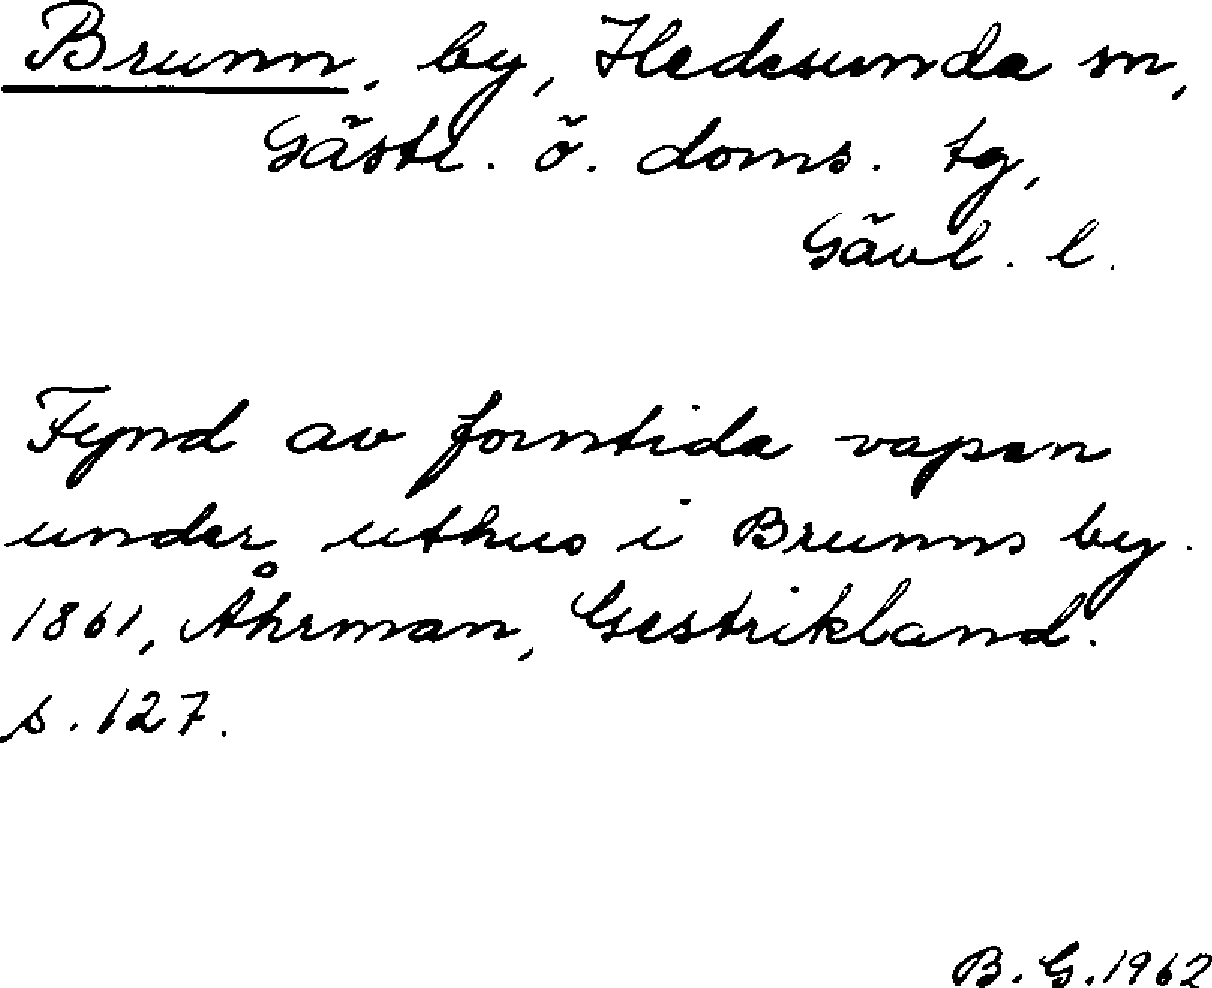 Brunn, by, Hedesunda sn,
Gästr. ö. doms. tg,
Gävl. l.
Fynd av forntida vapen
under uthus i Brunns by.
1861, Åhrman, Gestrikland.
s. 127.
B. G. 1962